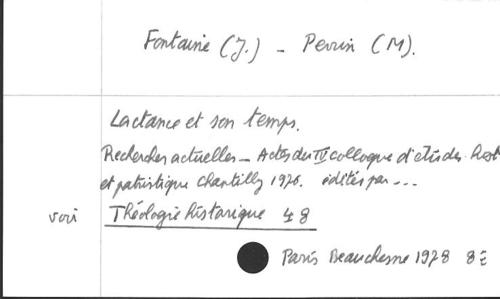 Fontaine (J.) - Perrin (M).
Lactance et son temps.
Recherches actuelles - Actes du IV colloque d'études hist
et patristique Chantilly 1976. édités par...
voir Théologie historique 48
Paris Beauchesne 1978 8